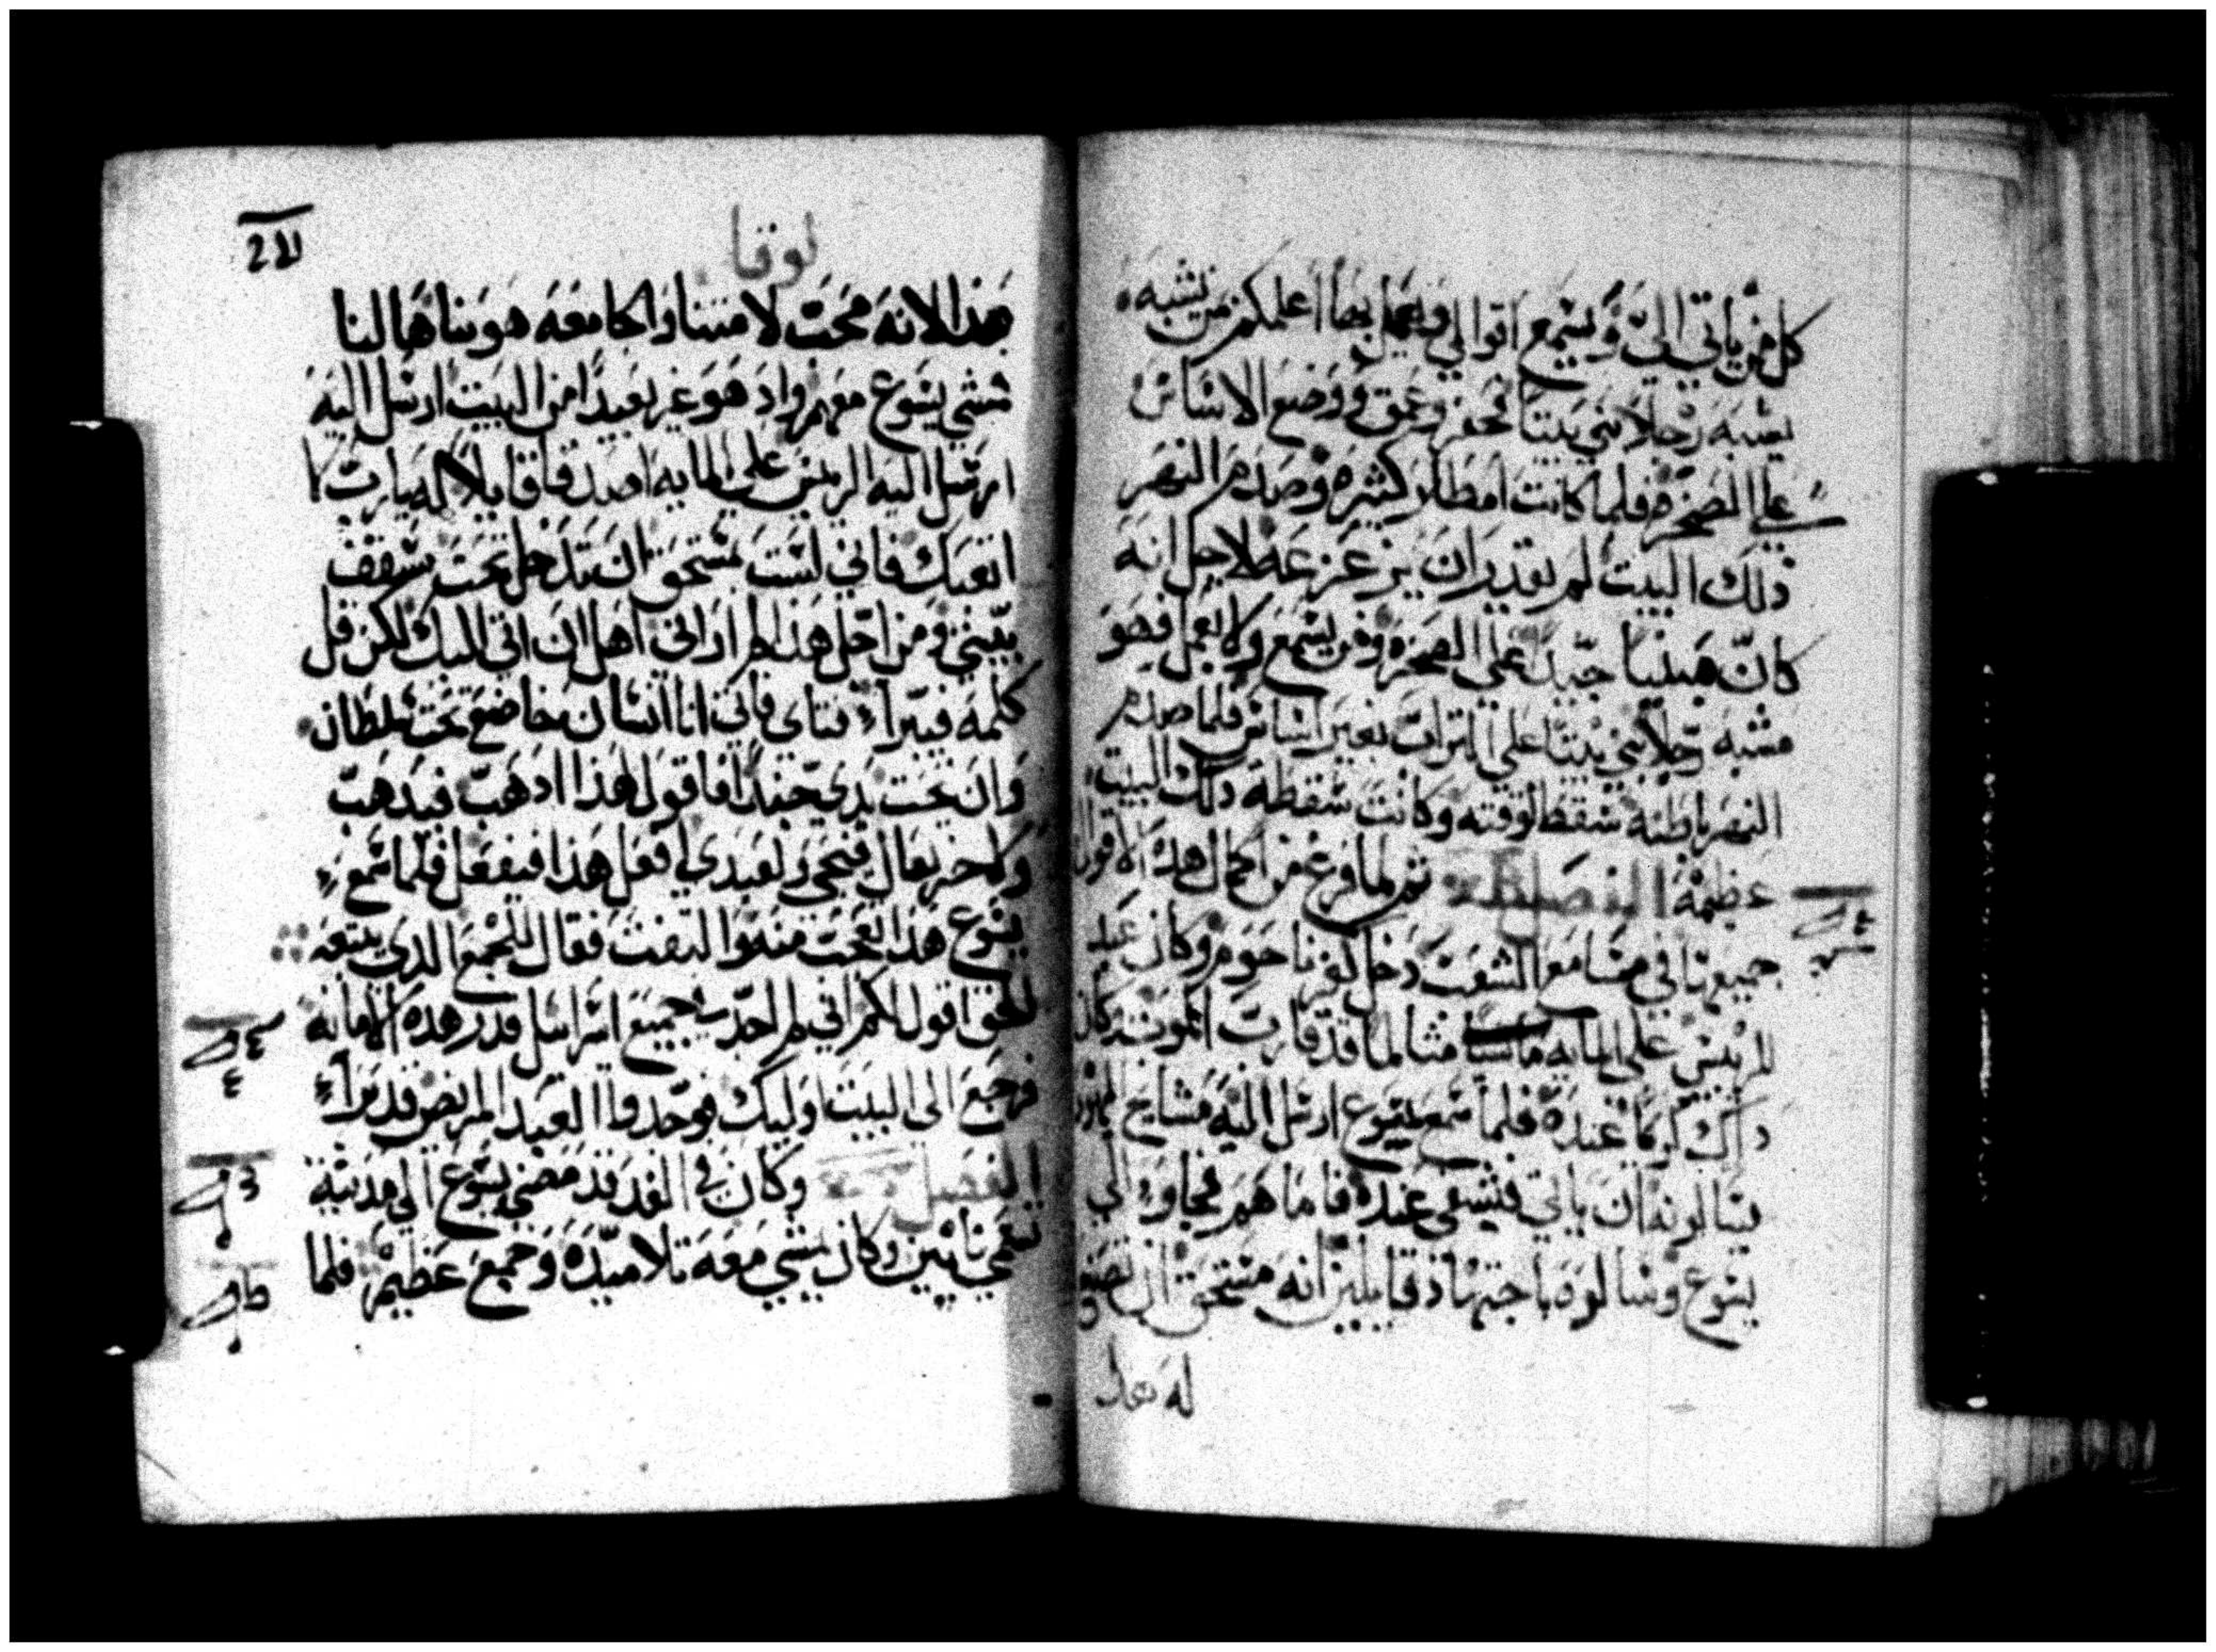 كل من ياتي اليّ ويسمع اقوالي ويعمل بها اعلمكم من يشبه
يشبه رجلا بني بيتا فحفر وعمق ووضع الاساس
علي الصخره فلما كانت امطار كثيره وصدم النهر
ذلك البيت لم يقدر ان يزعزعه لاجل انه
كان مبنيا جيدا علي الصخره ومن يسمع ولا يعمل فهو
مشبه رجلا بني بيتا علي التراب بغير اساس فلما صدم
النهر باطنه سقط لوقته وكانت سقطة ذلك البيت
عظيمة الفصل ثم لما فرغ من اكمال هذه الاقوال
جميعها في مسامع الشعب دخل كفرناحوم وكان عبد
لرييس علي المايه متالما قد قارب الموت وكان
ذاك كريما عنده فلما سمع بيسوع ارسل اليه مشايخ اليهود
يسالونه ان ياتي فيشفي عبده فاما هم فجاوء الي
يسوع وسالوه باجتهاد قايلين انه مستحق ان تصنع
له هذا
لوقا
هذا لانه محب لامتنا والجامعه هو بناها لنا
فمشي يسوع معهم واذ هو غير بعيدا من البيت ارسل اليه
ارسل اليه الرييس علي المايه اصدقا قايلا له يارب لا
اتعبك فاني لست مستحق ان تدخل تحت سقف
بيتي ومن اجل هذا لم اراني اهل ان اتي اليك لكن قل
كلمه فيبرا فتاي فاني انا انسان خاضع تحت سلطان
وان تحت يدي جندا فاقول لهذا اذهب فيذهب
ولاخر تعال فيجي ولعبدي افعل هذا فيفعل فلما سمع
يسوع هذا تعجب منه والتفت فقال للجمع الذي يتبعه
الحق اقول لكم اني لم اجد في جميع اسراييل قدر هذه الامانه
فرجع الي البيت اوليك فوجدوا العبد المريض قد برا
الفصل وكان في الغد قد مضي يسوع الي مدينة
تدعي نايين وكان يمشي معه تلاميذه وجمع عظيم فلما